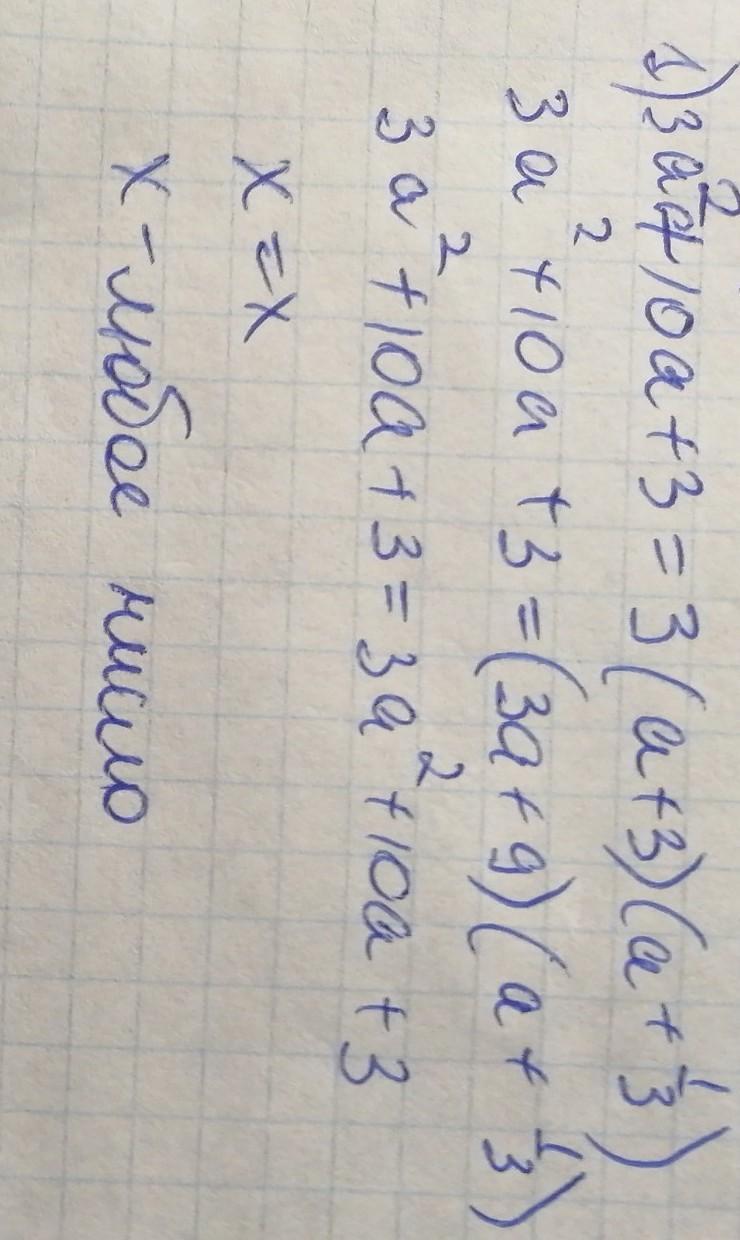 1) 3a² + 10a + 3 = 3(a+3)(a + 1/3)
3a² + 10a + 3 = (3a + 9)(a + 1/3)
3a² + 10a + 3 = 3a² + 10a + 3
x = x
x - любое число